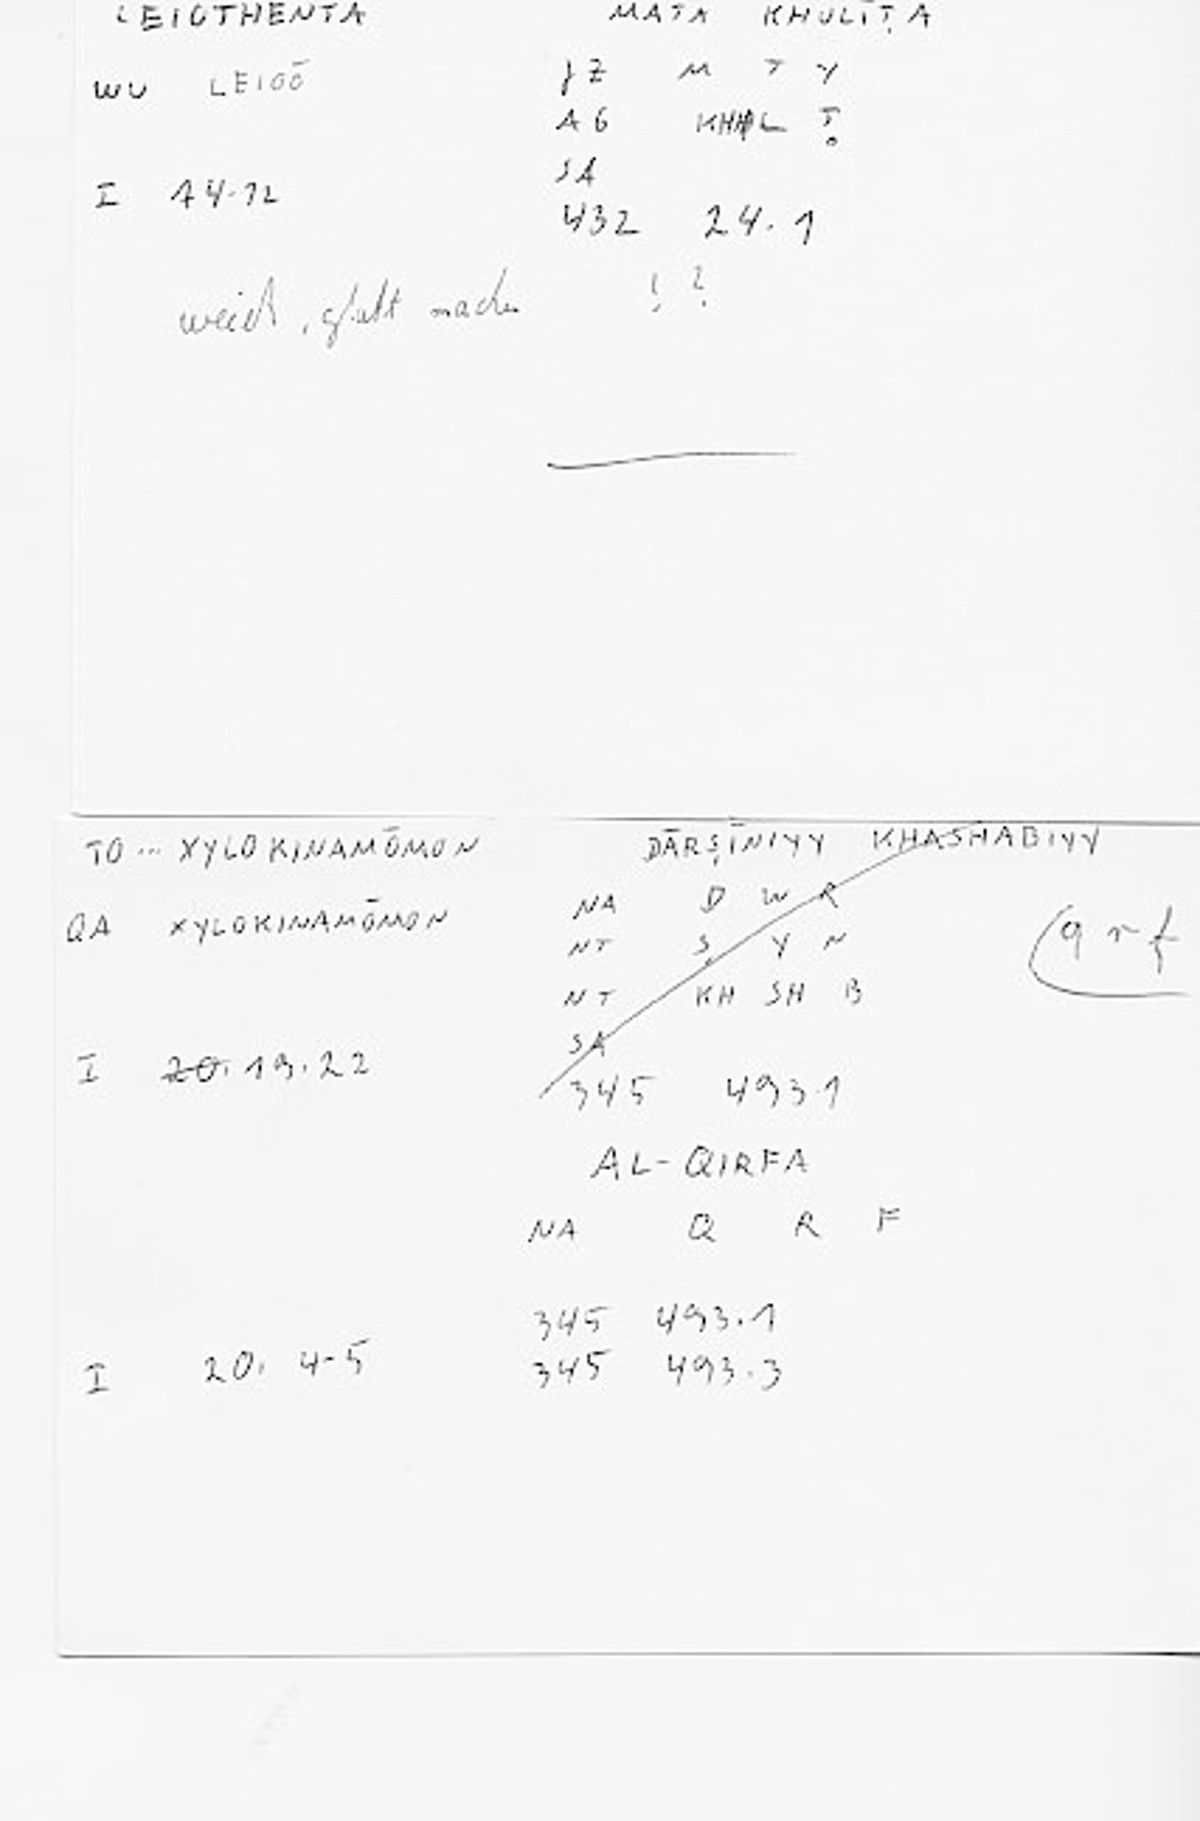 LEIOTHENTA MATA KHULIṬA
WU LEIOŌ JZ M T Y
AG KHHL Ṭ
SA
I 14.12 432 24.1
weich, glatt machen ! ?
TO ... XYLOKINAMŌMON DĀRṢĪNIYY KHASHABIYY
QA XYLOKINAMŌMON NA D W R
NT Ṣ Y N
(qrf
NT KH SH B
SA
I 20. 19.22 345 493.1
AL-QIRFA
NA Q R F
345 493.1
I 20. 4-5 345 493.3